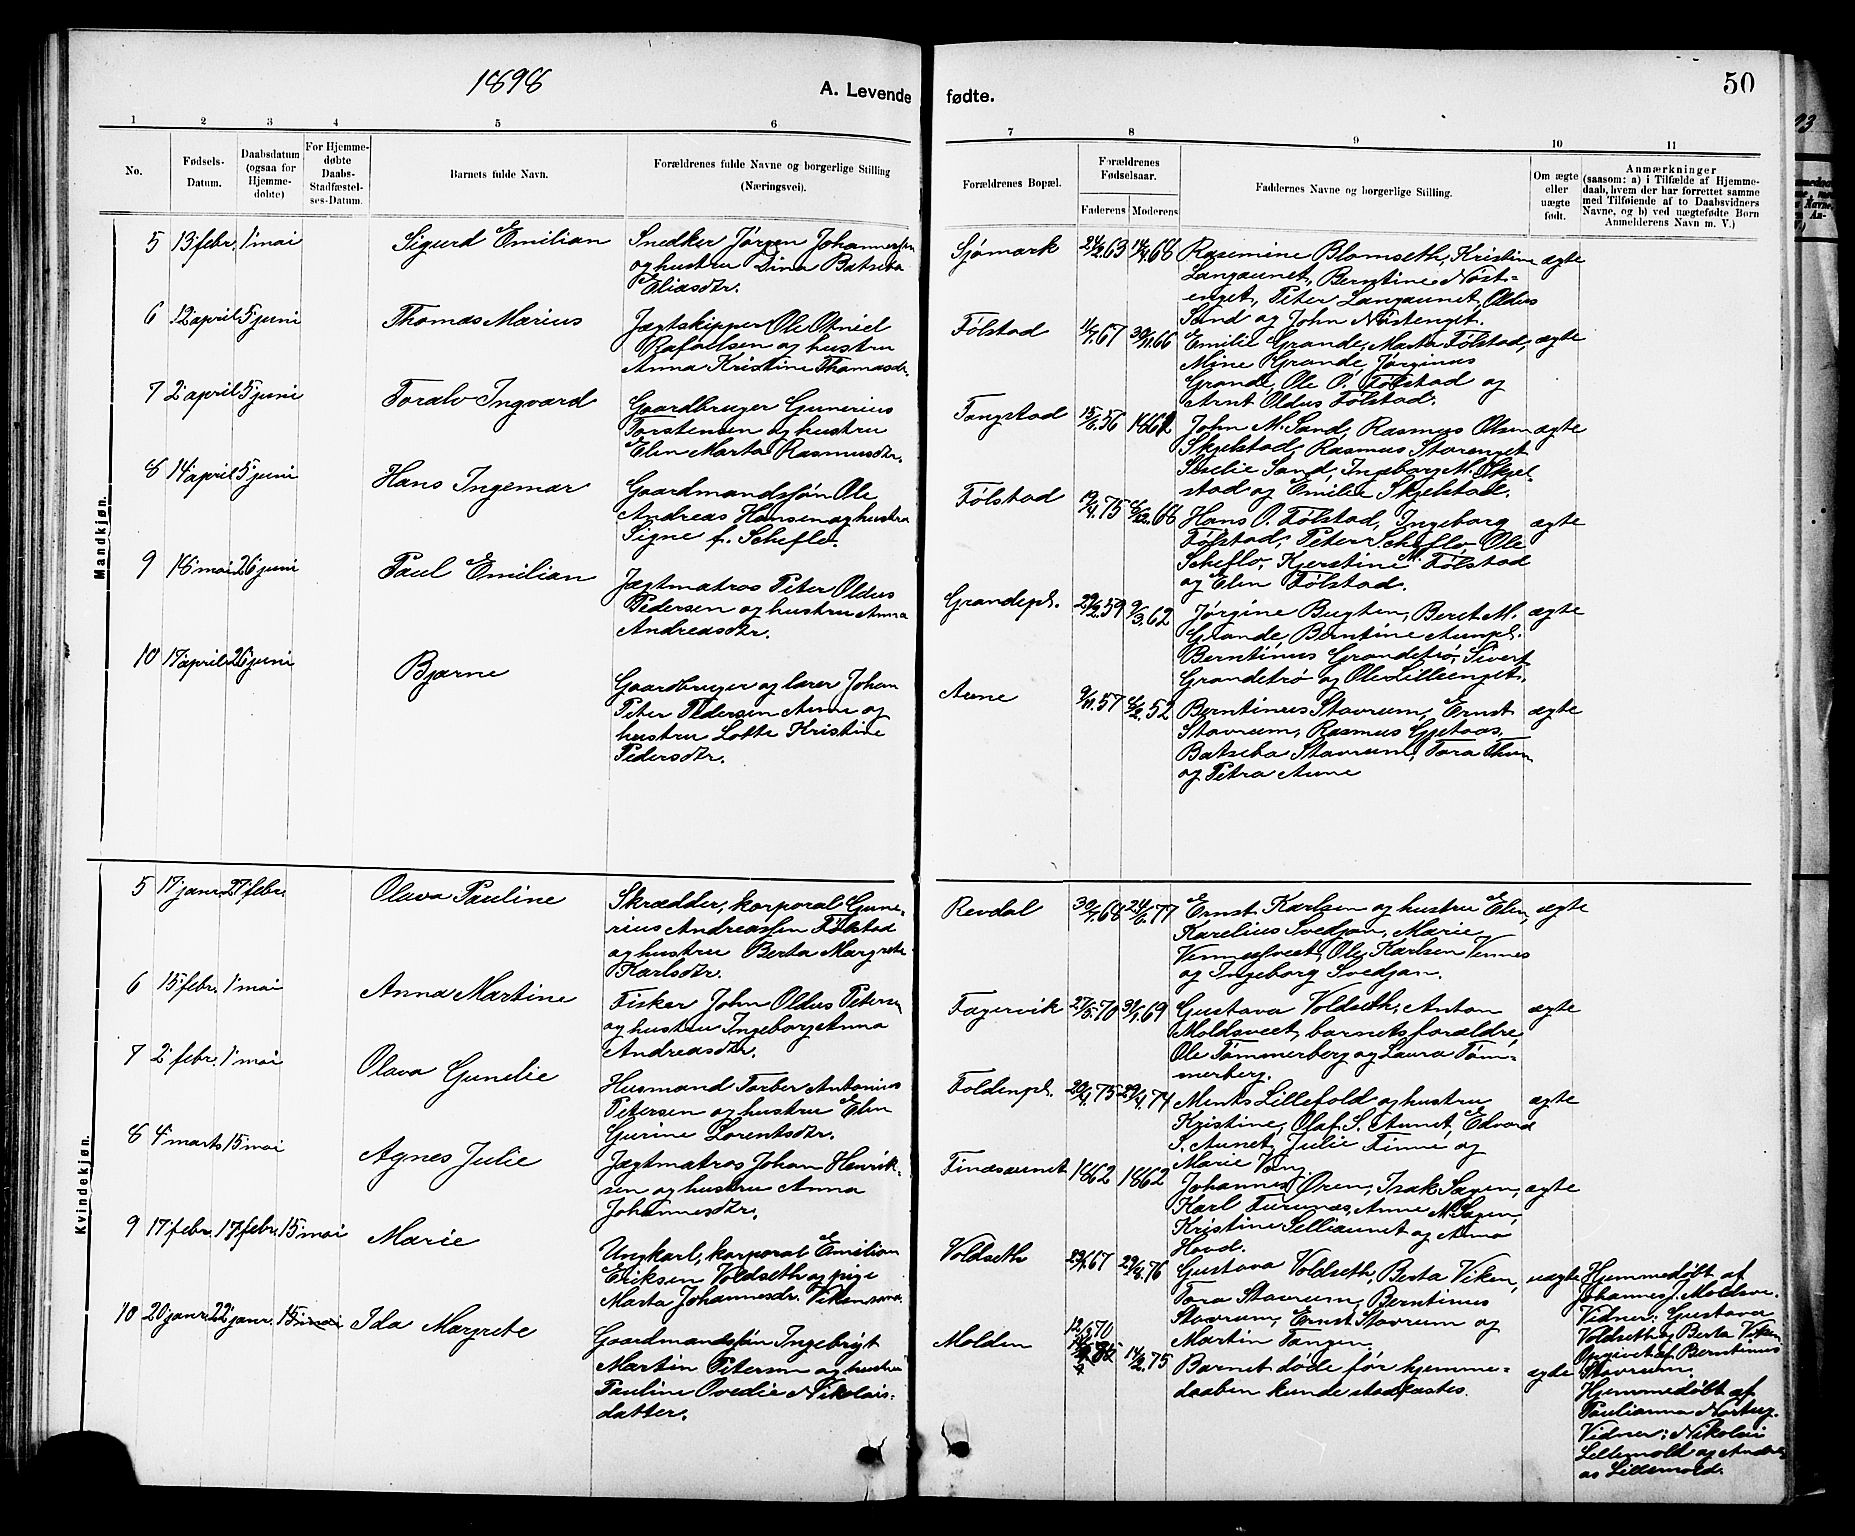 1898
A. Levende fødte.
50
1 2 3 4 5 6 7 8 9 10 11
No.
Fødsels-Datum.
Daabsdatum (ogsaa for Hjemmedøbte)
For Hjemmedøbte Daabs-Stadfæstelses-Datum.
Barnets fulde Navn.
Forældrenes fulde Navne og borgerlige Stilling (Næringsvei).
Forældrenes Bopæl.
Forældrenes Fødselsaar.
Faderens Moderens
Faddernes Navne og borgerlige Stilling.
Om ægte eller uægte født.
Anmærkninger
(saasom: a) i Tilfælde af Hjemmedaab, hvem der har forrettet samme med Tilføiende af to Daabsvidners Navne, og b) ved uægtefødte Børn Anmelderens Navn m. V.)
Mandkjøn.
5 13 febr. 1 mai Sigurd Emilian
Snedker Jørgen Johannessen
og hustru Dina Batseba
Eliasdtr.
Sjømark 63 68
Rasmine Blomseth, Kristine
Langaunet, Berntine Nøst-
enget, Peter Langaunet, Oldus
Sand og John Nøstenget.
ægte
6 12 april 5 juni Thomas Marius
Jægtskipper Ole Otniel
Rafaelsen og hustru
Anna Kristine Thomasdr.
Følstad 67 66
Emilie Grande, Marta Følstad,
Mine Grande, Jørginus
Grande, Ole O. Følstad og
Arnt Oldus Følstad.
ægte
7 2 april 5 juni Toralv Ingvard
Gaardbruger Gunerius
Torstensen og hustru
Elen Marta Rasmusdtr.
Tangstad 15/6 56
John M. Sand, Rasmus Olsen
Skjelstad, Rasmus Storenget
Serelie Sand, Ingeborg M. Skjel-
stad og Emilie Skjelstad.
ægte
8 14 april 5 juni Hans Ingemar
Gaardmandssøn Ole
Andreas Hansen og hustru
Signe f. Scheflo.
Følstad 75 68
Hans O. Følstad, Ingeborg
Følstad, Peter Scheflo, Ole
Scheflo, Kjerstine M. Følstad
og Elen Følstad.
ægte
9 18 mai 26 juni Paul Emilian
Jægtmatros Peter Oldus
Pedersen og hustru Anna
Andreasdtr.
Grandepl. 59 9/3 62
Jørgine Bugten, Beret M.
Grande, Berntine Aunpl.
Berntinus Grandetrø, Sivert
Grandetrø og Ole Lilleenget.
ægte
10 17 april 26 juni Bjarne
Gaardbruger og lærer Johan
Peter Pedersen Aune og
hustru Lotte Kristine
Pedersdtr.
Aune 9/11 57 6/2 52
Berntinus Stavrum, Ernst
Stavrum, Rasmus Gjetaas,
Batseba Stavrum, Tora Thun
og Petra Aune
ægte
Kvindekjøn.
5 17 janr. 27 febr. Olava Pauline
Skrædder, korporal Gune-
rius Andreassen Følstad
og hustru Berta Margrete
Karlsdtr.
Revdal 30/7 68 24/6 77
Ernst Karlsen og hustru Elen,
Karelius Svedjan, Marie
Vennesveet, Ole Karlsen Vennes
og Ingeborg Svedjan.
ægte
6 15 febr. 1 mai Anna Martine
Fisker John Oldus Petersen
og hustru Ingeborg Anna
Andreasdtr.
Fagervik 70 69
Gustava Voldseth, Anton
Moldsveet, barnets forældre,
Ole Tømmerberg og Laura Tøm-
merberg.
ægte
7 2 febr. 1 mai Olava Gunelie
Husmand Torber Antonius
Petersen og hustru Elen
Gurine Lorentsdtr.
Foldenpl. 20/4 75 29/4 74
Ments Lillefold og hustru
Kristine, Olaf S. Aunet, Edvard
S. Aunet, Julie Finne og
Marie Vang.
ægte
8 4 marts 15 mai Agnes Julie
Jægtmatros Johan Henrik-
sen og hustru Anna
Johannesdtr.
Finsaunet 1862 1862
Johannes Øren, Isak Sagen,
Karl Furunæs, Anne M. Sagen,
Kristine Selliaunet og Anna
Hovd.
ægte
9 17 febr. 17 febr. 15 mai Marie
Ungkarl, korporal Emilian
Eriksen Voldseth og pige
Marta Johannesdr. Viken
Voldseth 67 29/4 76
Gustava Voldseth, Berta Viken,
Tora Stavrum, Berntinus
Stavrum, Ernst Stavrum og
Martin Tangen.
uægte
Hjemmedøbt af
Johannes J. Moldsve.
Vidner: Gustava
Voldseth og Berta Viken
Opgivet af Berntinus
Stavrum.
10 20 janr. 22 janr. 15 mai Ida Margrete
Gaardmandssøn Ingebrigt
Martin Petersen og hustru
Pauline Ovedie Nikolais-
datter.
Molden 12/5 70 14/2 75
Barnet døde før hjemme-
daaben kunde stadfæstes.
ægte
Hjemmedøbt af
Paulianna Norberg.
Vidner: Nikolai
Lillemold og Andre-
as Lillemold.